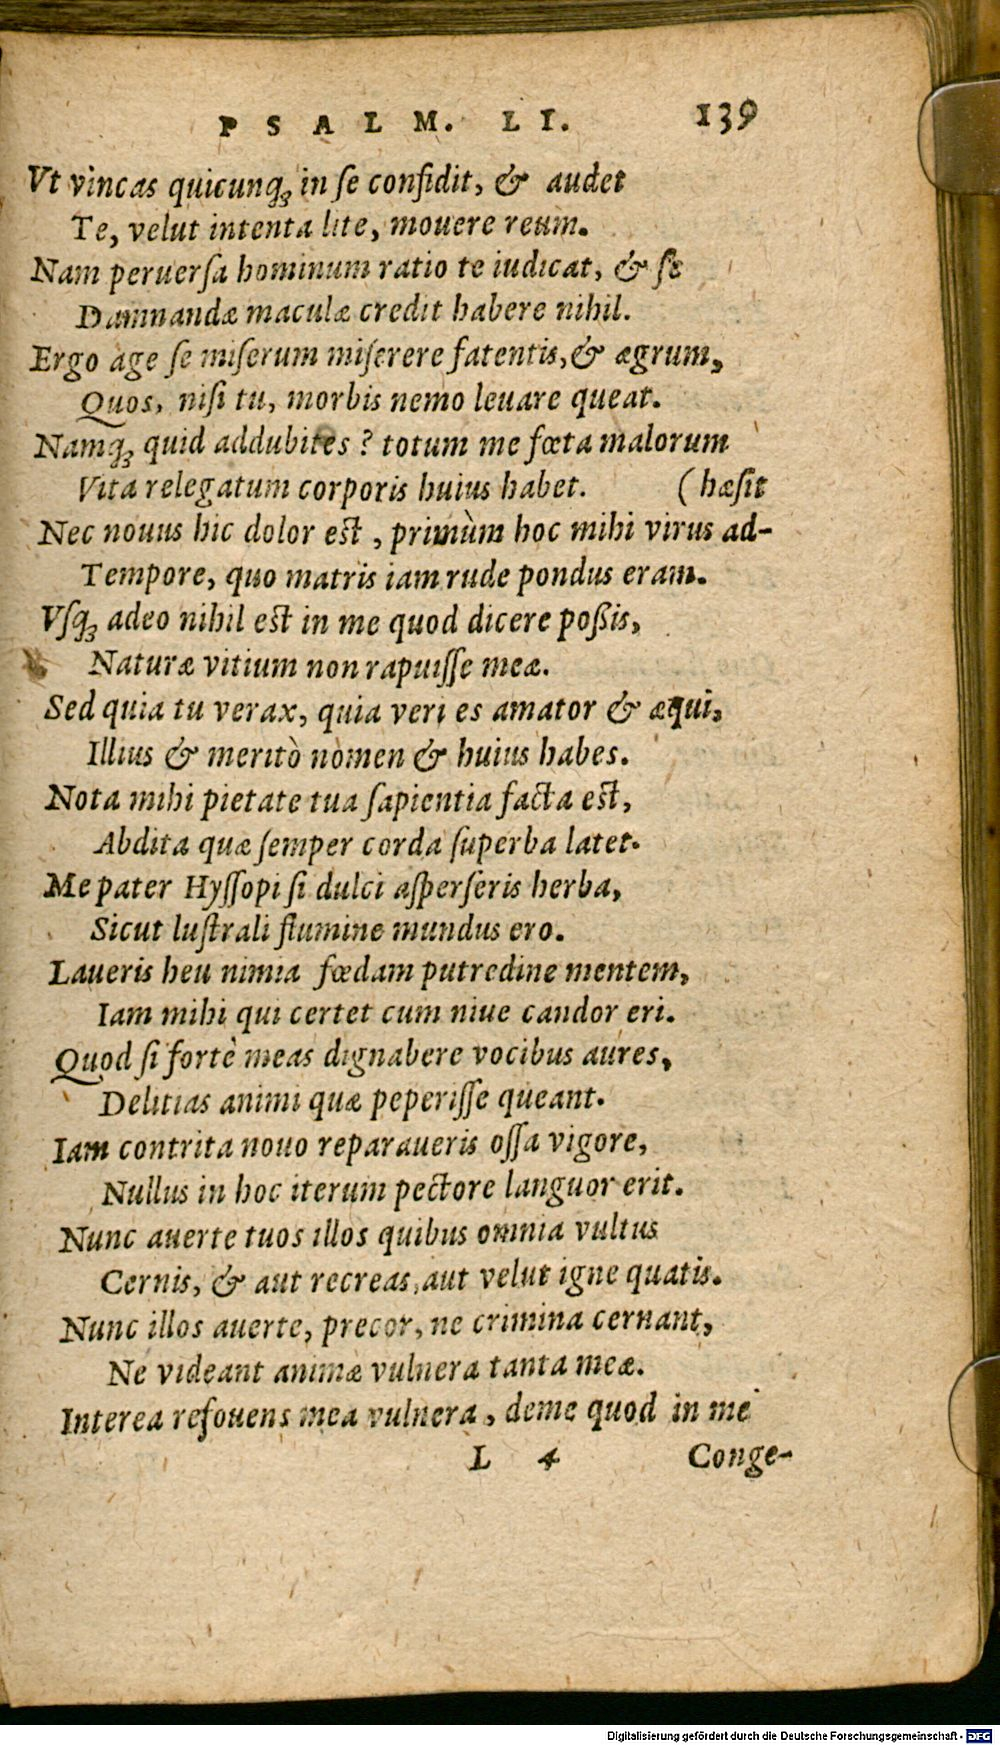 PSALM. LI. 139
Vt vincas quicunq; in ſe confidit, & audet
Te, velut intenta lite, mouere reum.
Nam peruerſa hominum ratio te iudicat, & ſe
Damnandæ maculæ credit habere nihil.
Ergo age ſe miſerum miſerere fatentis, & ægrum,
Quos, niſi tu, morbis nemo leuare queat.
Namq; quid addubites? totum me fœta malorum
Vita relegatum corporis huius habet. (hæſit
Nec nouus hic dolor est, primùm hoc mihi virus ad-
Tempore, quo matris iam rude pondus eram.
Vſq; adeo nihil est in me quod dicere poßis,
Naturæ vitium non rapuiſſe meæ.
Sed quia tu verax, quia veri es amator & æqui,
Illius & meritò nomen & huius habes.
Nota mihi pietate tua ſapientia facta est,
Abdita quæ ſemper corda ſuperba latet.
Me pater Hyſſopi ſi dulci aſperſeris herba,
Sicut luſtrali flumine mundus ero.
Laueris heu nimia fœdam putredine mentem,
Iam mihi qui certet cum niue candor eri.
Quod ſi fortè meas dignabere vocibus aures,
Delitias animi quæ peperiſſe queant.
Iam contrita nouo reparaueris oſſa vigore,
Nullus in hoc iterum pectore languor erit.
Nunc auerte tuos illos quibus omnia vultus
Cernis, & aut recreas, aut velut igne quatis.
Nunc illos auerte, precor, ne crimina cernant,
Ne videant animæ vulnera tanta meæ.
Interea refouens mea vulnera, deme quod in me
L 4 Conge-
Digitalisierung gefördert durch die Deutsche Forschungsgemeinschaft - DFG